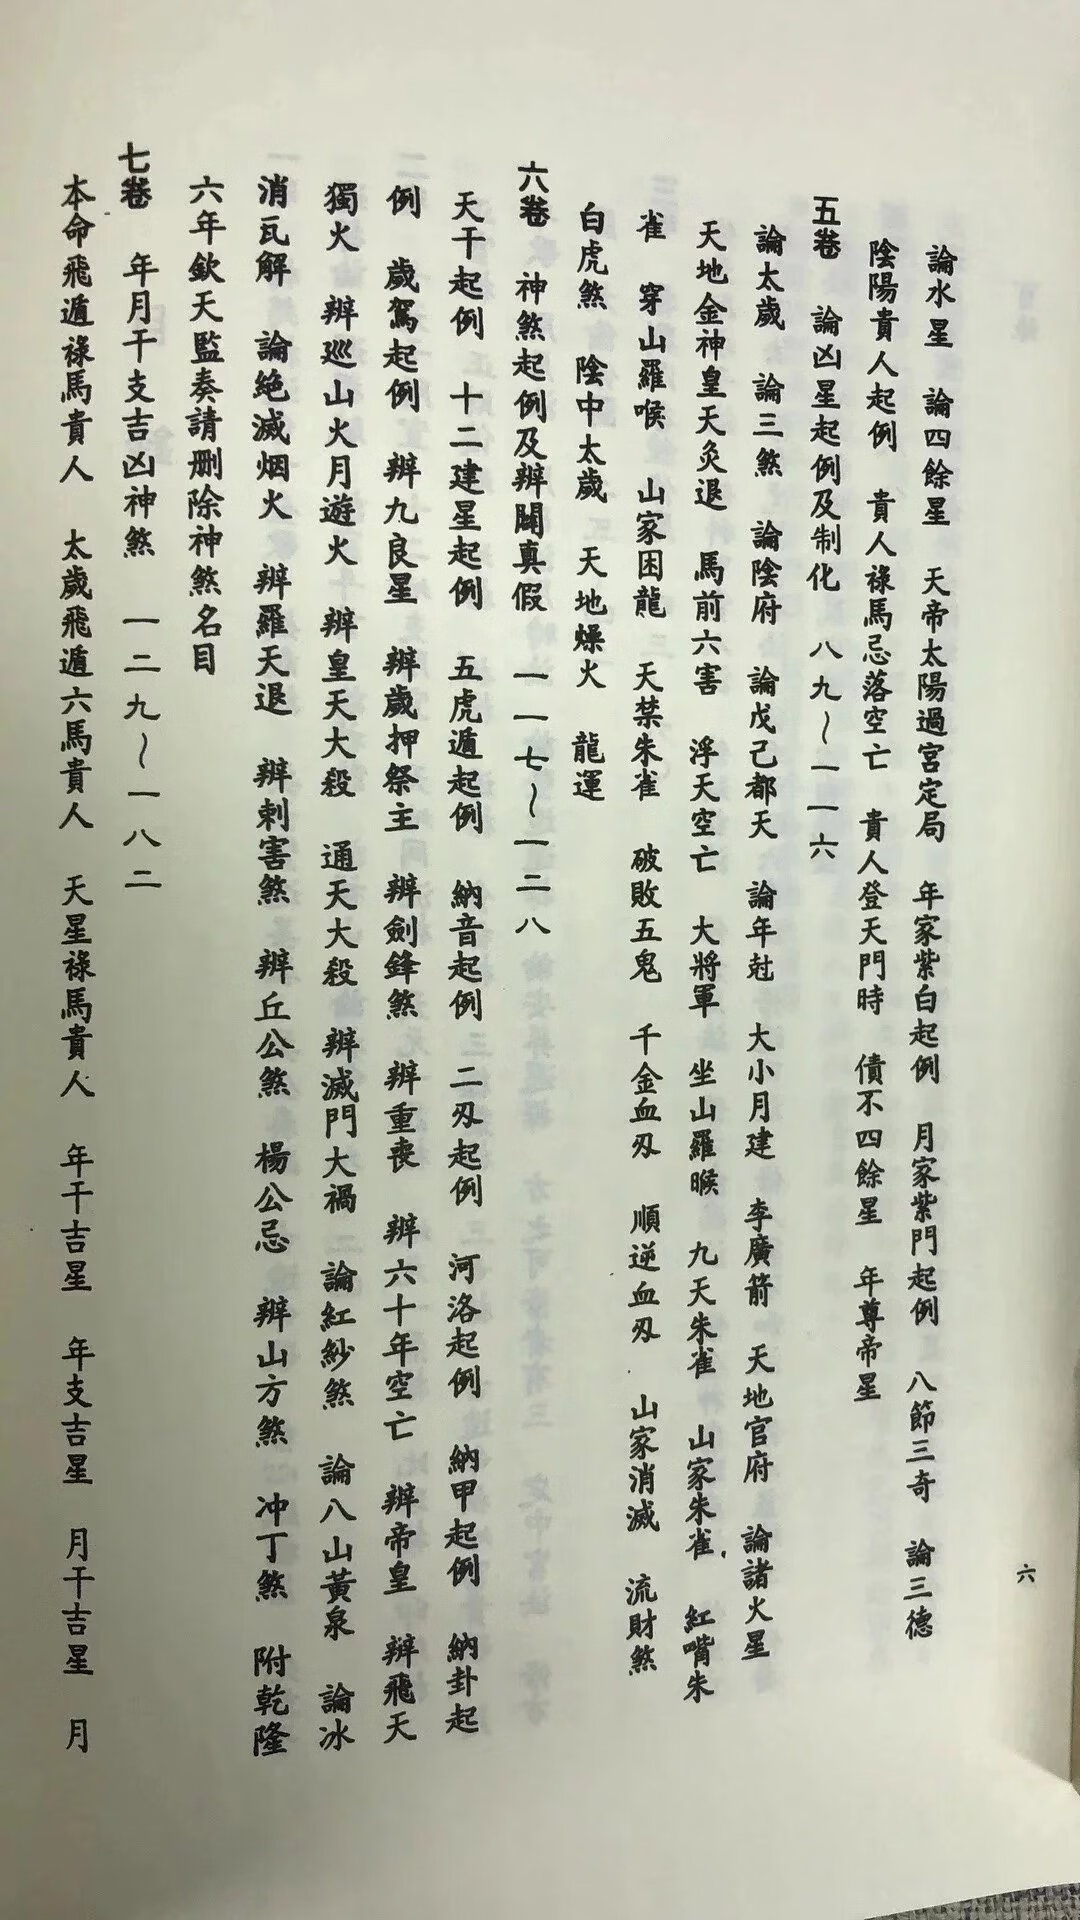 六
論水星　論四餘星　天帝太陽過宮定局　年家紫白起例　月家紫門起例　八節三奇　論三德
陰陽貴人起例　貴人祿馬忌落空亡　貴人登天門時　債不四餘星　年尊帝星
五卷　論凶星起例及制化　八九～一一六
論太歲　論三煞　論陰府　論戊己都天　論年尅　大小月建　李廣箭　天地官府　論諸火星
天地金神皇天灸退　馬前六害　浮天空亡　大將軍　坐山羅睺　九天朱雀　山家朱雀　紅嘴朱
雀　穿山羅喉　山家困龍　天禁朱雀　破敗五鬼　千金血刃　順逆血刃　山家消滅　流財煞
白虎煞　陰中太歲　天地燥火　龍運
六卷　神煞起例及辨闢真假　一一七～一二八
天干起例　十二建星起例　五虎遁起例　納音起例　二刃起例　河洛起例　納甲起例　納卦起
例　歲駕起例　辨九良星　辨歲押祭主　辨劍鋒煞　辨重喪　辨六十年空亡　辨帝皇　辨飛天
獨火　辨巡山火月遊火　辨皇天大殺　通天大殺　辨滅門大禍　論紅紗煞　論八山黃泉　論冰
消瓦解　論絕滅烟火　辨羅天退　辨剌害煞　辨丘公煞　楊公忌　辨山方煞　冲丁煞　附乾隆
六年欽天監奏請刪除神煞名目
七卷　年月干支吉凶神煞　一二九～一八二
本命飛遁祿馬貴人　太歲飛遁六馬貴人　天星祿馬貴人　年干吉星　年支吉星　月干吉星　月